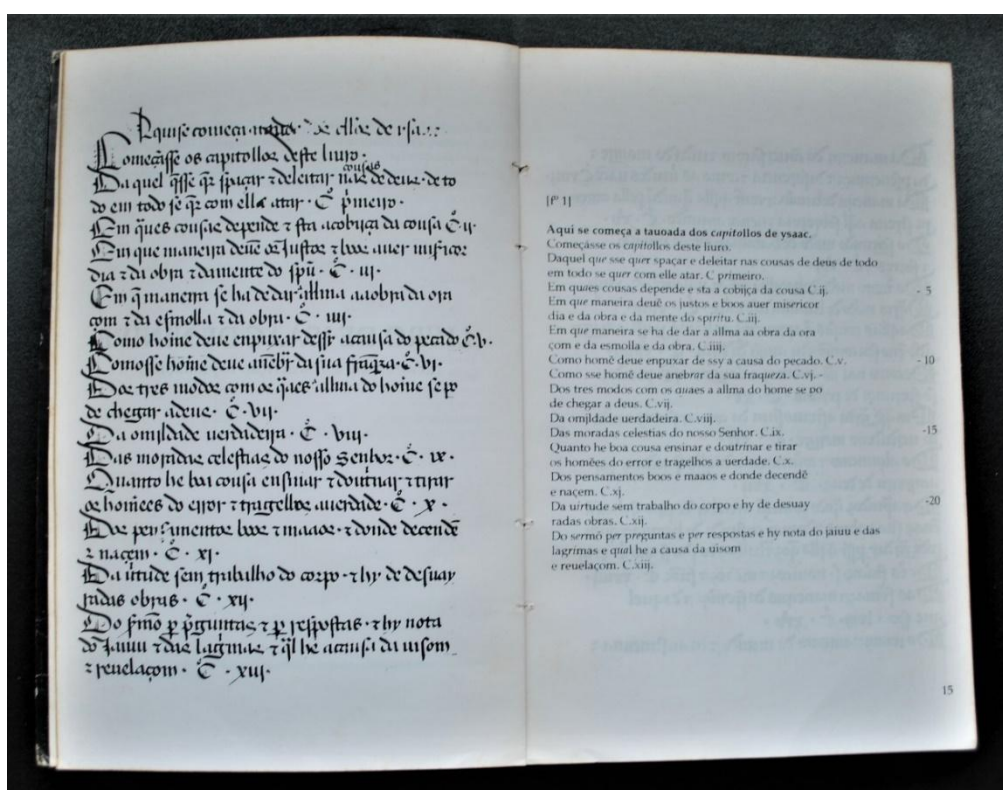 Aquise começa
Começasse os capitollos deste liuro.
cousas
Da quel q̃sse q̃r spaçar ⁊ deleitar nas de deus de to
do em todo se q̃r com elle atar. C̊ p̃meiro.
Em q̃ues cousas depende ⁊ sta a cobijça da cousa C̊ ij.
Em que maneira deuẽ os Justos ⁊ boos auer mis̃icor
dia ⁊ da obra ⁊ da mente do sp̃u. C̊. iij.
Em q̃ maneira se ha de dar allma aa obra da ora
çom ⁊ da esmolla ⁊ da obra. C̊. iiij.
Como home deue enpuxar dessy a causa do pecado C̊ v.
Comosse home deue anebr̃ da sua fraq̃za. C̊. vj.
Dos tres modos com os q̃aes allma do home se po
de chegar a deus. C̊. vij.
Da omjldade uerdadeyra. C̊. viij.
Das moradas celestias do nosso Senhor. C̊. ix.
Quanto he boa cousa ensinar ⁊ doutrinar ⁊ tirar
os homẽes do error ⁊ tragellos a uerdade. C̊. x.
Dos pensamentos boos ⁊ maaos ⁊ donde decendẽ
⁊ naçem. C̊. xj.
Da ũtude sem trabalho do corpo ⁊ hy de desuay
radas obras. C̊. xij.
Do s̃mõ p̱ p̃guntas ⁊ p̱ respostas ⁊ hy nota
do Jaiuu ⁊ das lag̃mas ⁊ q̃l he a causa da uisom
⁊ reuelaçom. C̊. xiij.
[fº 1]
Aqui se começa a tauoada dos capitollos de ysaac.
Começasse os capitollos deste liuro.
Daquel que sse quer spaçar e deleitar nas cousas de deus de todo
em todo se quer com elle atar. C primeiro.
Em quaes cousas depende e sta a cobijça da cousa C.ij. - 5
Em que maneira deuẽ os justos e boos auer misericor
dia e da obra e da mente do spiritu. C.iij.
Em que maneira se ha de dar a allma aa obra da ora
çom e da esmolla e da obra. C.iiij.
Como homẽ deue enpuxar de ssy a causa do pecado. C.v. - 10
Como sse homẽ deue anebrar da sua fraqueza. C.vj. -
Dos tres modos com os quaes a allma do home se po
de chegar a deus. C.vij.
Da omjldade uerdadeira. C.viij.
Das moradas celestias do nosso Senhor. C.ix. -15
Quanto he boa cousa ensinar e doutrinar e tirar
os homẽes do error e tragelhos a uerdade. C.x.
Dos pensamentos boos e maaos e donde decendẽ
e naçem. C.xj.
Da uirtude sem trabalho do corpo e hy de desuay -20
radas obras. C.xij.
Do sermõ per preguntas e per respostas e hy nota do jaiuu e das
lagrimas e qual he a causa da uisom
e reuelaçom. C.xiij.
15